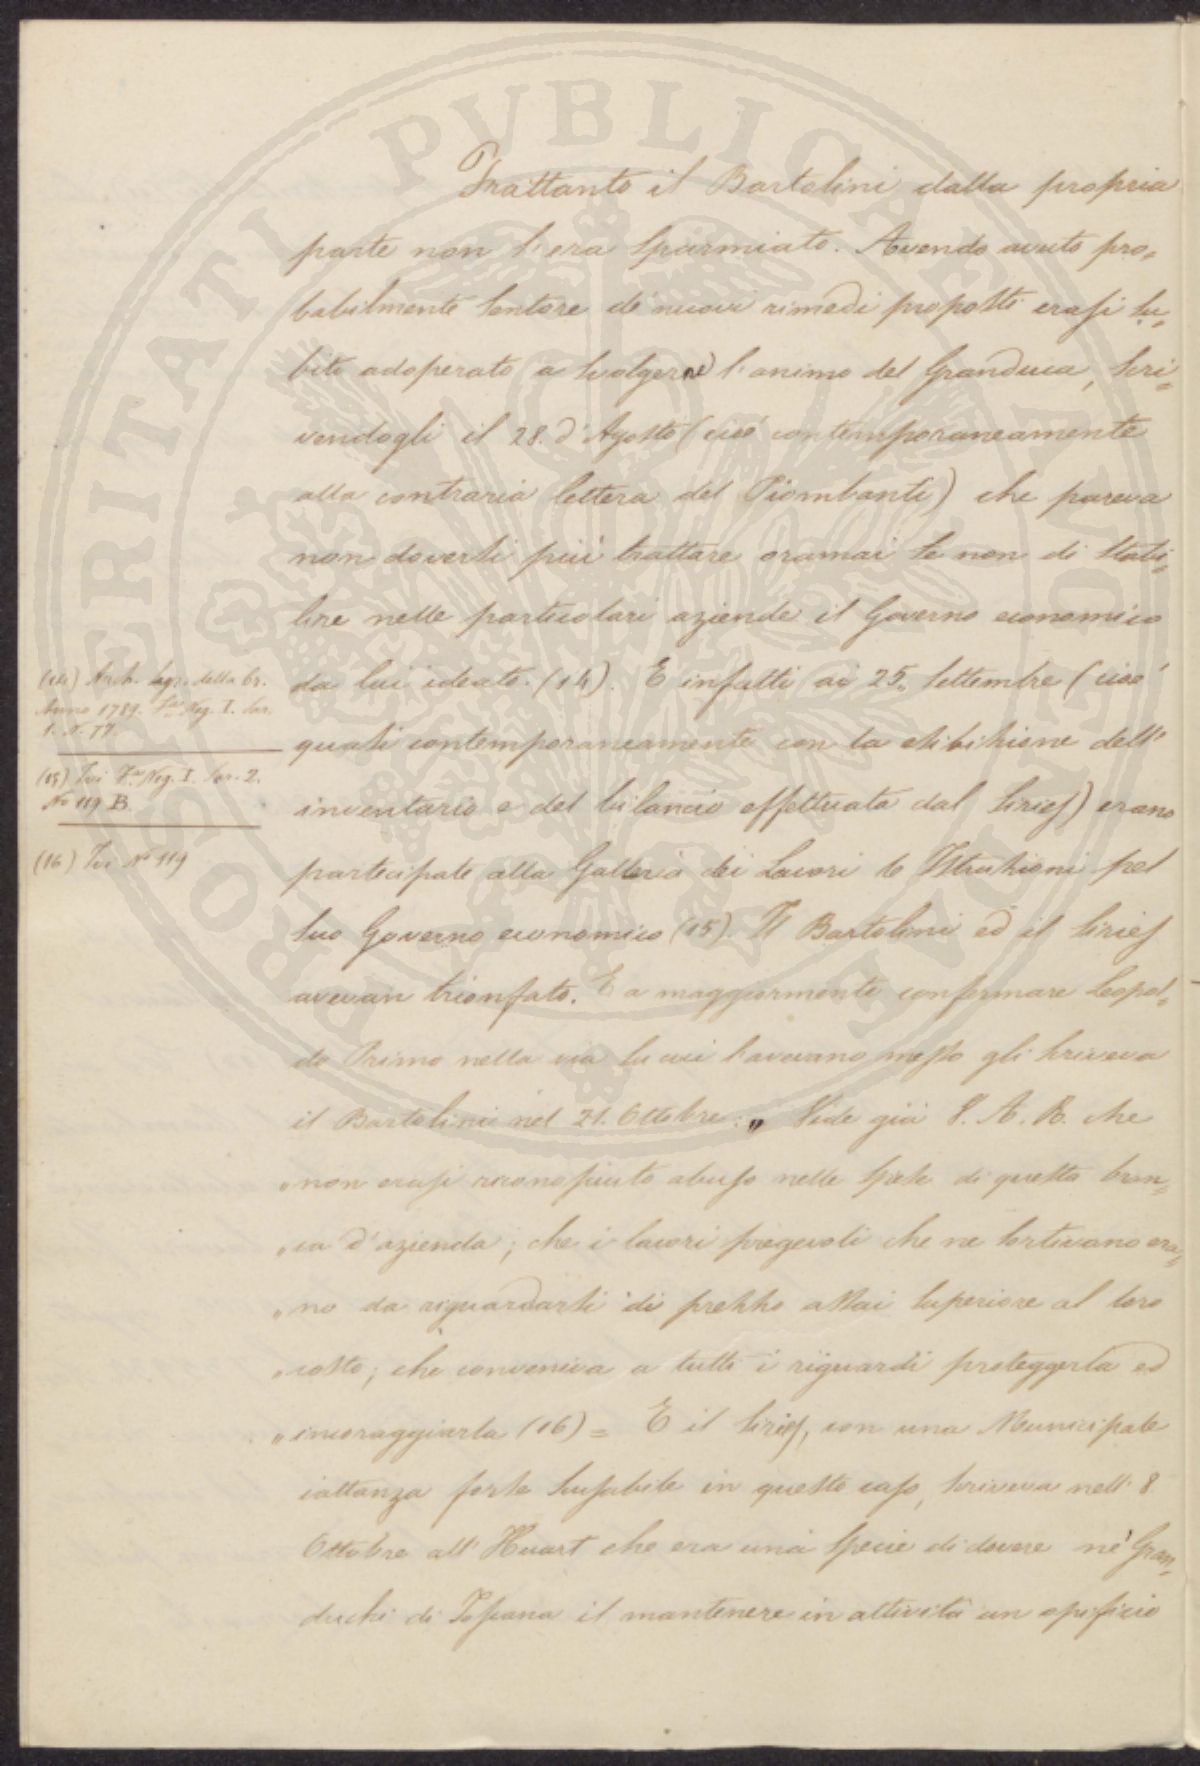 Frattanto il Bartolini dalla propria
parte non s'era sparmiato. Avendo avuto pro=
babilmente sentore de' nuovi rimedi proposti erasi su=
bito adoperato a svolgere l'animo del Granduca, scri=
vendogli il 28. d'Agosto (cioè contemporaneamente
alla contraria lettera del Piombanti) che pareva
non doversi più trattare oramai se non di stabi=
lire nelle particolari aziende il Governo economico
da lui ideato. (14). E infatti ai 25. Settembre (cioè
quasi contemporaneamente con la esibizione dell'
inventario e del bilancio effettuata dal Siries) erano
partecipate alla Galleria dei Lavori le Istruzioni pel
suo Governo economico (15). Il Bartolini ed il Siries
avevan trionfato. E a maggiormente confermare Leopol=
do Primo nella via su cui l'avevano messo gli scriveva
il Bartolini nel 21. Ottobre: „ Vide già V. A. R. che
„ non erasi riconosciuto abuso nelle spese di questa bran=
„ ca d'azienda; che i lavori pregevoli che ne sortivano era=
„ no da riguardarsi di prezzo assai superiore al loro
„ costo; che conveniva a tutti i riguardi proteggerla ed
„ incoraggiarla (16) = E il Siries, con una Municipale
iattanza forse scusabile in questo caso, scriveva nell' 8
Ottobre all' Huart che era una specie di dovere ne' Gran=
duchi di Toscana il mantenere in attività un opificio
(14) Arch. Segr. della Cr.
Anno 1789. Neg. I. Ser.
1. N. 77.
(15) Ivi F.a Neg. I. Ser. 2.
No 119 B
(16) Ivi No 119
PROSPERITATI PUBLICAE